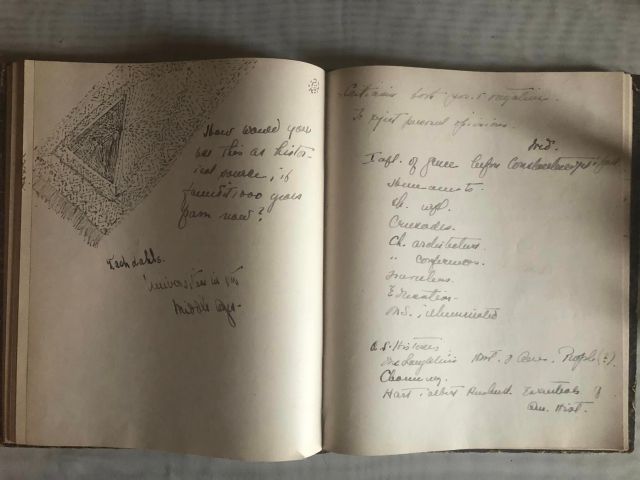 How would you
use this as histor-
ical source, if
found 1000 years
from now?
Universities in the
Middle Ages-
To reject personal opinions.
Infl. of Greece before Constantinople
Ch. infl.
Crusades.
Ch. architecture.
" conferences.
Travelers.
Education.
M.S. illuminated
U.S. Histories
McLaughlin's Hist. of Amer. People (?).
Channing.
Hart, Albert Bushnell. Essentials of
Am. Hist.